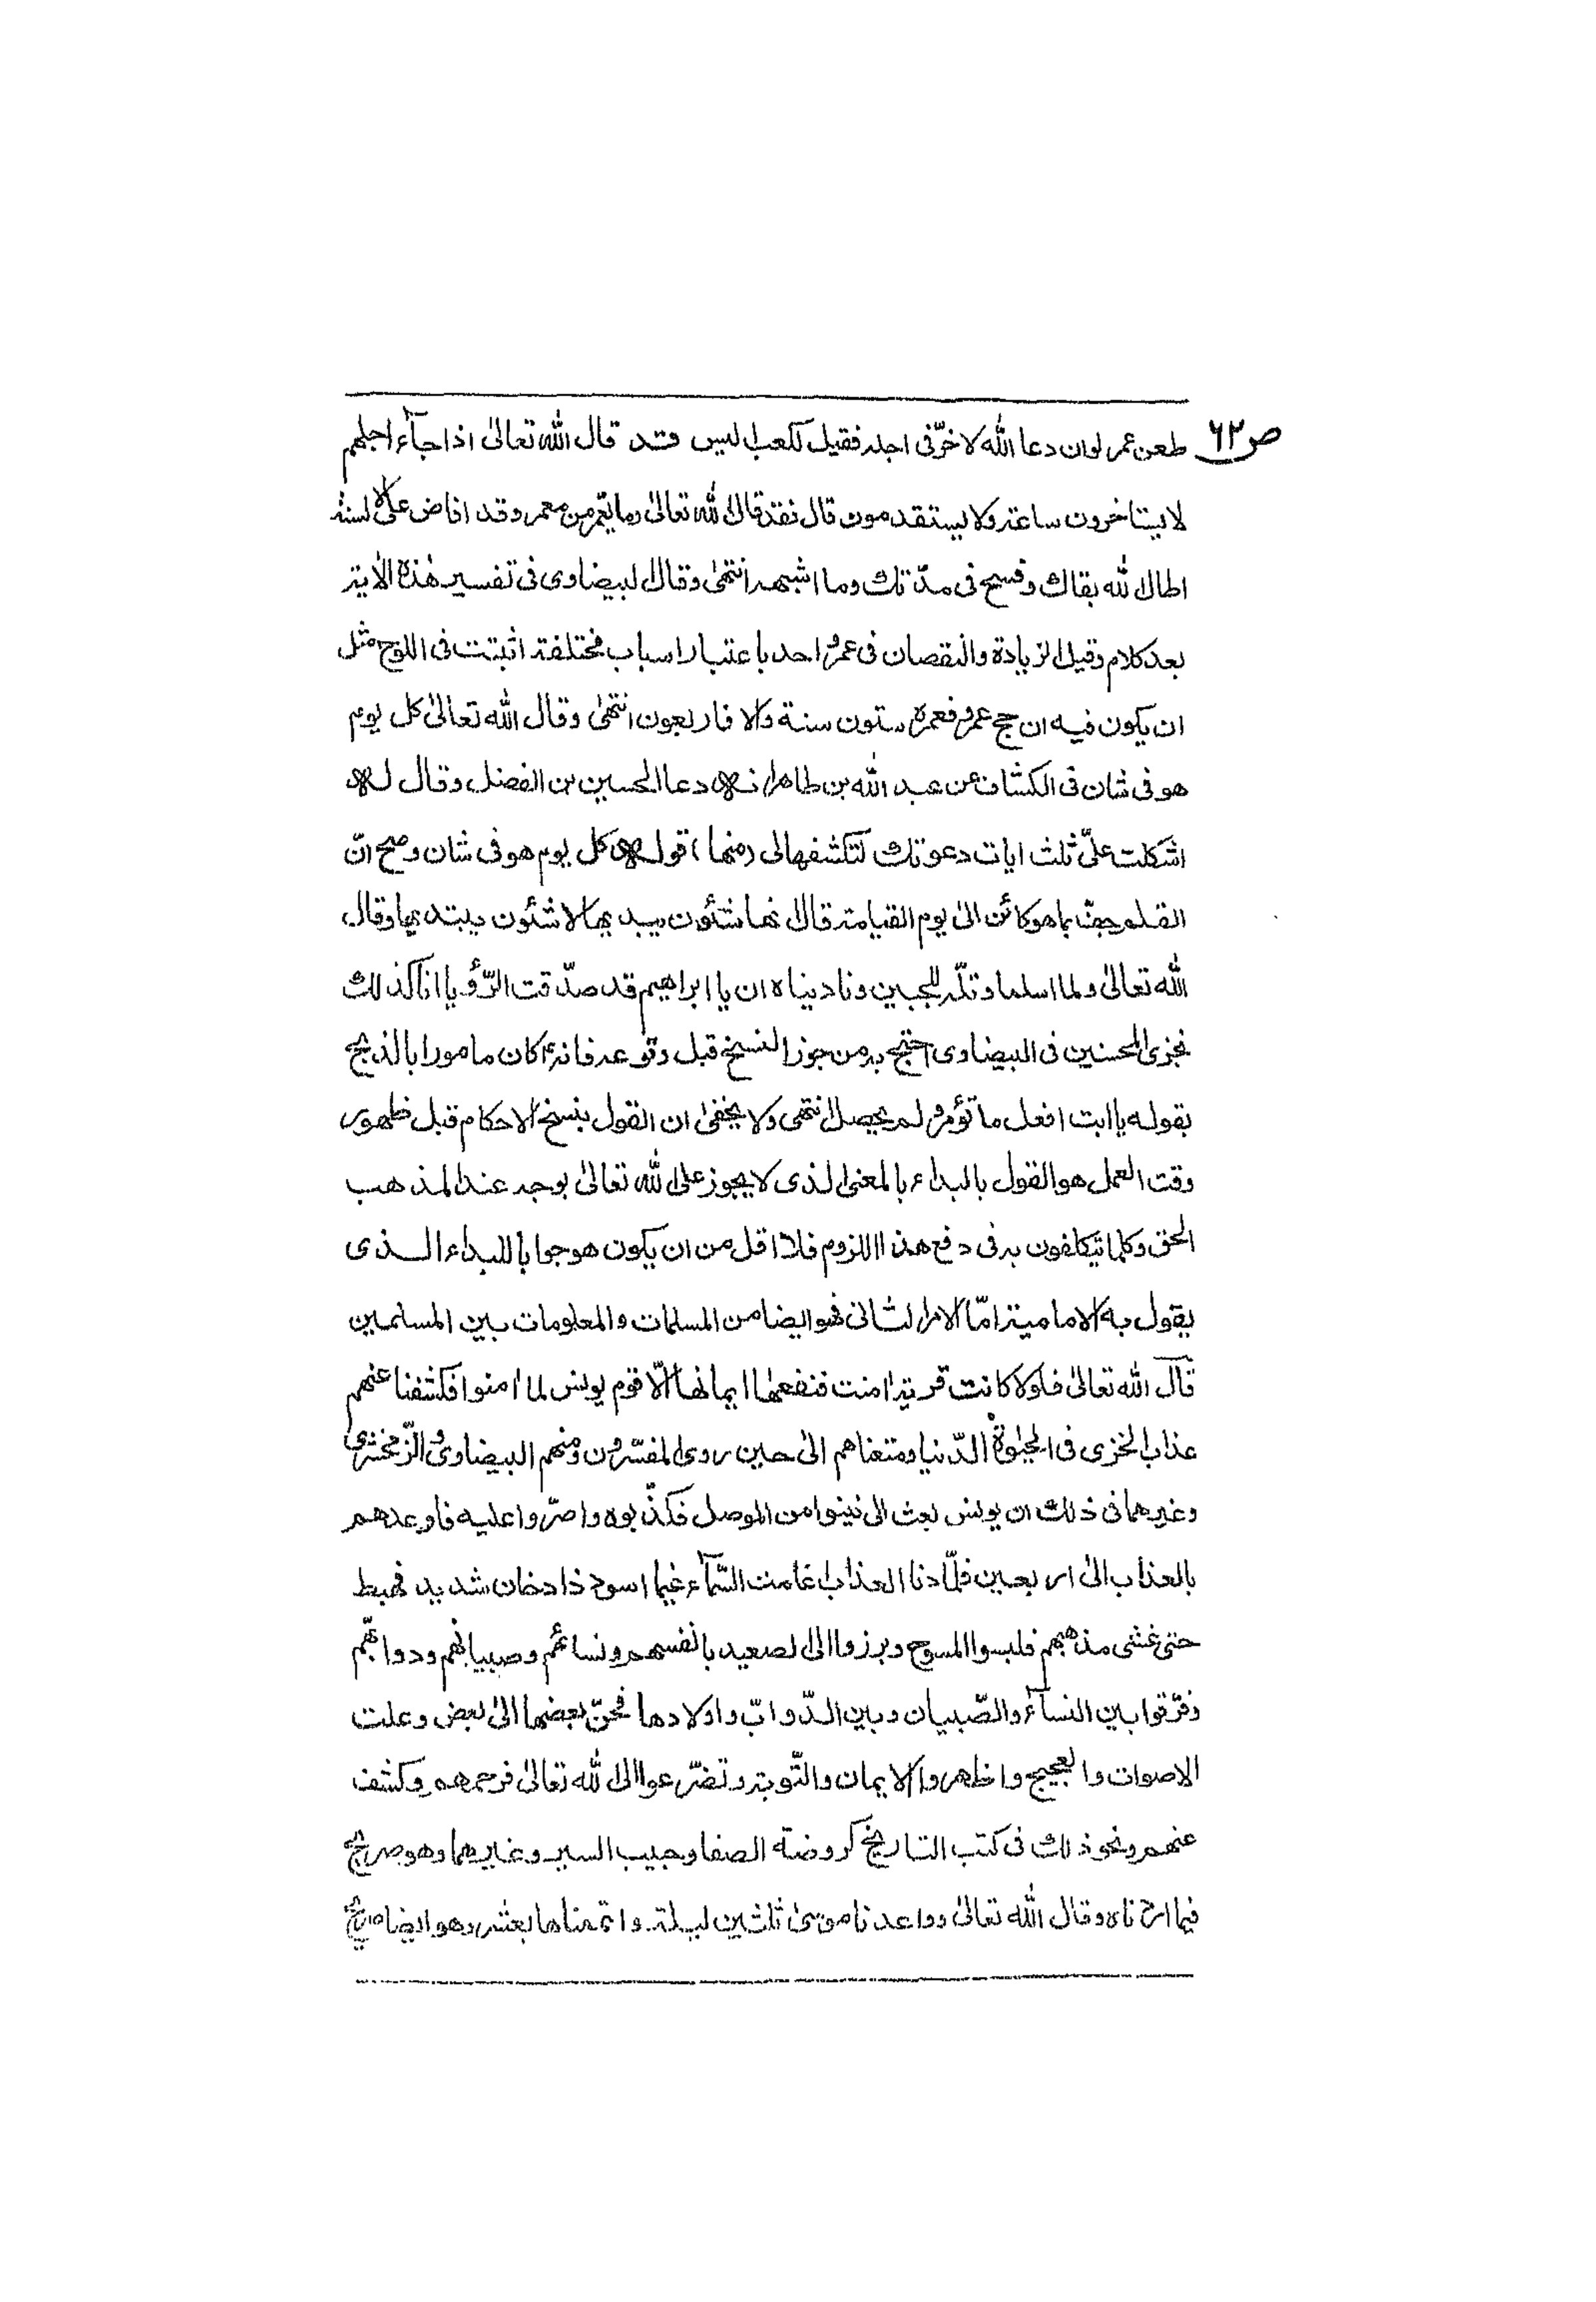 ص ٦٢
طعن عمر لوان دعا الله لاخّر فى اجله فقيل لكعب اليس قد قال الله تعالىٰ اذا جآء اجلهم
لا يستاخرون ساعته ولا يستقدمون قال فقد قال الله تعالىٰ وما يعّمر من معمر وقد افاض على الالسنة
اطال الله بقاك وفسح فى مدّتك وما اشبهه انتهىٰ وقال البيضاوى فى تفسير هٰذه الاٰية
بعد كلام وقيل الزيادة والنقصان فى عمر واحد باعتبار اسباب مختلفة اثبتت فى اللوح مثل
ان يكون فيه ان حج عمرو فعمره ستون سنة والا فاربعون انتهىٰ وقال الله تعالىٰ كل يوم
هو فى شان فى الكشاف عن عبد الله بن طاهر انه دعا الحسين بن الفضل وقال له
اشكلت علىّ ثلث ايات دعوتك لتكشفها لى (منها) قوله كل يوم هو فى شان وصح انّ
القلم جفّ بما هو كائن الىٰ يوم القيامة قال انها شئون يبديها لا شئون يبتديها وقال
الله تعالىٰ ولما اسلما وتلّه للجبين وناديناه ان يا ابراهيم قد صدّقت الرّؤيا انا كذلك
نجزى المحسنين فى البيضاوى احتج به من جوز النسخ قبل وقوعه فانه كان مامورا بالذبح
بقوله يا ابت افعل ما تؤمر ولم يحصل انتهى ولا يخفىٰ ان القول بنسخ الاحكام قبل ظهور
وقت العمل هو القول بالبداء بالمعنى الذى لا يجوز على الله تعالىٰ بوجه عند المذهب
الحق وكلما يتكلفون به فى دفع هذا اللزوم فلا اقل من ان يكون هو جوابا للبداء الذى
يقول به الامامية امّا الامر الثانى فهو ايضا من المسلمات والمعلومات بين المسلمين
قال الله تعالىٰ فلولا كانت قرية اٰمنت فنفعها ايمانها الّا قوم يونس لما اٰمنوا فكشفنا عنهم
عذاب الخزى فى الحيٰوة الدّنيا ومتعناهم الىٰ حين روى المفسّرون ومنهم البيضاوى والزّمخشرى
وغيرهما فى ذلك ان يونس بعث الى نينوا من الموصل فكذّبوه واصرّوا عليه فاوعدهم
بالعذاب الىٰ اربعين فلّما دنا العذاب غامت السّمآء غيما اسود ذا دخان شديد فهبط
حتى غشى مذهبهم فلبسوا المسوح وبرزوا الى الصعيد بانفسهم ونسائهم وصبيانهم ودوابهّم
وفرّقوا بين النسآء والصّبيان وبين الدّوابّ واولادها فحنّ بعضها الىٰ بعض وعلت
الاصوات والعجيج واظهروا الايمان والتّوبة وتضرّعوا الى الله تعالىٰ فرحمهم وكشف
عنهم ونحو ذلك فى كتب التاريخ كروضة الصفا وحبيب السير وغيرهما وهو صريح
فيما اردناه وقال الله تعالىٰ وواعدنا موسىٰ ثلثين ليلة واتممناها بعشر وهو ايضا